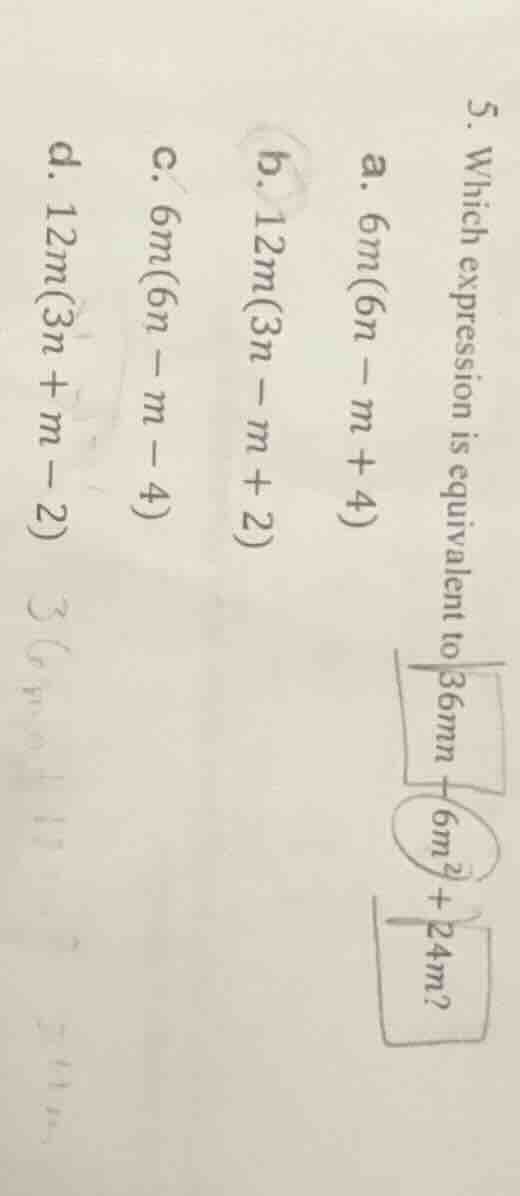 5. Which expression is equivalent to 36mn − 6m² + 24m?
a. 6m(6n − m + 4)
b. 12m(3n − m + 2)
c. 6m(6n − m − 4)
d. 12m(3n + m − 2)